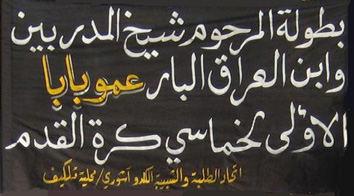 بطولة المرحوم شيخ المدربين
وابن العراق البار عمو بابا
الاولى لخماسي كرة القدم
اتحاد الطلبة والشبيبة الكلدو آشوري / محلية تلكيف